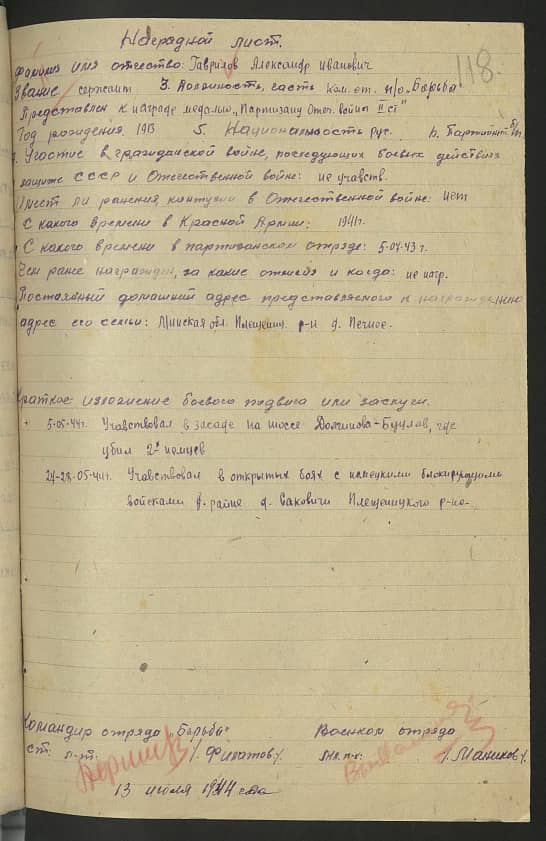 Наградной лист.
118.
Фамилия имя отчество: Гаврилов Александр Иванович
Звание сержант 3. Должность, часть ком. от. п/о „Барьба"
Представлен к награде медалью „Партизану Отеч. войны II ст"
Год рождения 19 5. Национальность рус. 6. Партийн. б/п
7. Участие в гражданской войне, последующих боевых действиях
защите СССР и Отечественной войне: не учавств.
Имеет ли ранения, контузии в Отечественной войне: нет
С какого времени в Красной Армии: 1941г.
С какого времени в партизанском отряде: 5.04.43 г.
Чем ранее награжден, за какие отличия и когда: не нагр.
Постоянный домашний адрес представляемого к награждению
адрес его семьи: Минская обл. Плещениц. р-н д.
Краткое изложение боевого подвига или заслуги.
5-05-44г. Учавствовал в засаде на шоссе Долгинова-Будслав, где
убил 2х немцев
24-28-05-44г. Учавствовал в открытых боях с немецкими блокирующими
войсками в районе д. Саковичи Плещеницкого р-на.
Командир отряда „Барьба" Военком отряда
ст. л-т. /Филатов/. /Маников/.
13 июля 1944 года